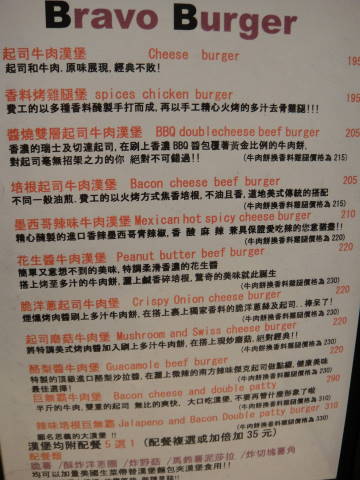 Bravo Burger
起司牛肉漢堡 Cheese burger 195
起司和牛肉,原味展現,經典不敗!
香料烤雞腿堡 spices chicken burger 195
費工的以多種香料醃製手打而成,再以手工精心火烤的多汁去骨雞腿!!!
醬燒雙層起司牛肉漢堡 BBQ doublecheese beef burger 205
香濃的瑞士及切達起司,在刷上香濃 BBQ 醬包覆著黃金比例的牛肉餅,
對起司毫無招架之力的你 絕對不可錯過!! (牛肉餅換香料雞腿價格為 215)
培根起司牛肉漢堡 Bacon cheese beef burger 205
不同一般油煎,費工的以火烤方式焦香培根,不油且香,道地美式傳統的搭配
(牛肉餅換香料雞腿價格為 215)
墨西哥辣味牛肉漢堡 Mexican hot spicy cheese burger 210
精心醃製的進口香辣墨西哥青辣椒,香 酸 麻 辣 兼具保證愛吃辣的您意猶豐!!
(牛肉餅換香料雞腿價格為 220)
花生醬牛肉漢堡 Peanut butter beef burger 220
簡單又意想不到的美味,特調柔滑香濃的花生醬
搭上烤至多汁的牛肉餅,灑上鹹香碎培根,驚奇的美味就此誕生
(牛肉餅換香料雞腿價格為 230)
脆洋蔥起司牛肉堡 Crispy Onion cheese burger 220
煙燻烤肉醬刷上多汁牛肉餅,在搭上裹上獨家香料的脆洋蔥絲及起司..棒呆了!
(牛肉餅換香料雞腿價格為 230)
起司蘑菇牛肉堡 Mushroom and Swiss cheese burger 220
將特調美式烤肉醬加入刷上多汁牛肉餅,在搭上現炒蘑菇,絕對經典!!
(牛肉餅換香料雞腿價格為 230)
酪梨醬牛肉堡 Guacamole beef burger 220
特製的頂級進口酪梨沙拉醬,在灑上微辣的南方辣味傑克起司做點綴,健康美味
最佳選擇! (牛肉餅換香料雞腿價格為 230)
巨無霸牛肉堡 Bacon cheese and double patty 290
半斤的牛肉,雙重的起司 無比的爽快、大口吃漢堡,不要再管什麼形象了啦
(牛肉餅換香料雞腿價格為 310)
辣味培根巨無霸 Jalapeno and Bacon Double patty burger 310
顧名思義的大漢堡 !!
漢堡均附配餐 5 選 1 (配餐複選或加倍加 35 元)
配餐類
脆薯 /酥炸洋蔥圈 /炸野菇 /馬鈴薯泥莎拉 /炸切塊薯角
均可以加量美國生菜帶替漢堡麵包夾漢堡食用!!